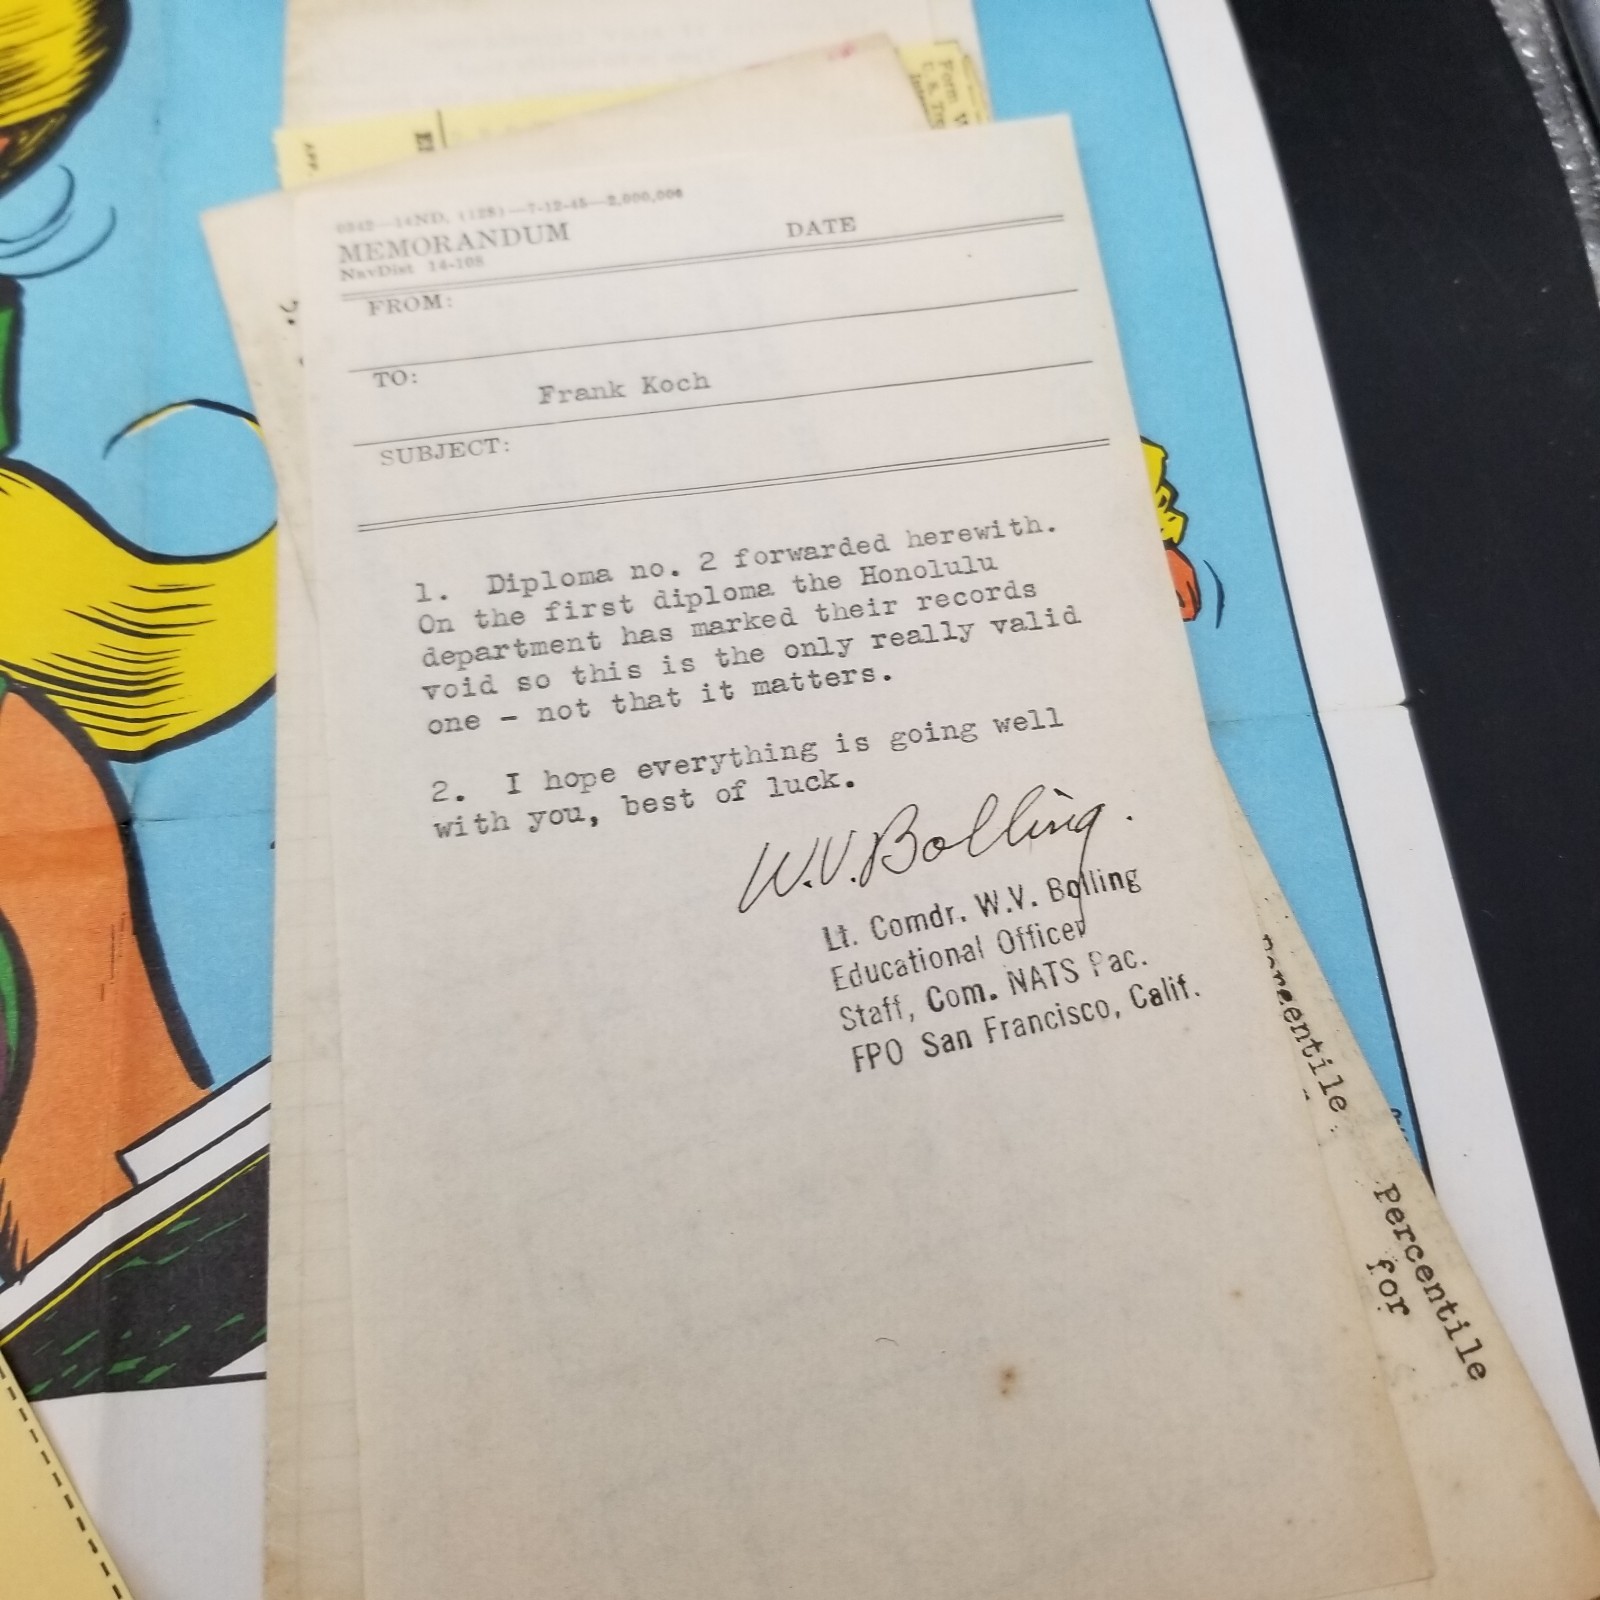 Form W
U. S. Tre
APP.
El
0342—14ND, (128)—7-12-45—2,000,000
MEMORANDUM DATE
NavDist 14-108
FROM:
TO: Frank Koch
SUBJECT:
1. Diploma no. 2 forwarded herewith.
On the first diploma the Honolulu
department has marked their records
void so this is the only really valid
one - not that it matters.
2. I hope everything is going well
with you, best of luck.
W.V. Bolling.
Lt. Comdr. W.V. Bolling
Educational Officer
Staff, Com. NATS Pac.
FPO San Francisco, Calif.
Percentile
Percentile
for